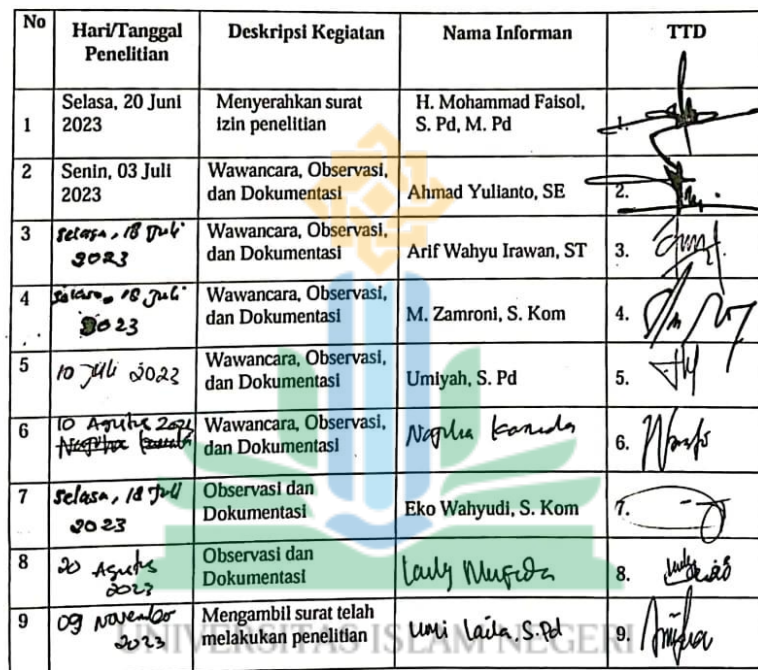 No Hari/Tanggal Penelitian Deskripsi Kegiatan Nama Informan TTD
1 Selasa, 20 Juni 2023 Menyerahkan surat izin penelitian H. Mohammad Faisol, S. Pd, M. Pd 1.
2 Senin, 03 Juli 2023 Wawancara, Observasi, dan Dokumentasi Ahmad Yulianto, SE 2.
3 Selasa, 18 Juli 2023 Wawancara, Observasi, dan Dokumentasi Arif Wahyu Irawan, ST 3.
4 Selasa, 18 Juli 2023 Wawancara, Observasi, dan Dokumentasi M. Zamroni, S. Kom 4.
5 10 Juli 2023 Wawancara, Observasi, dan Dokumentasi Umiyah, S. Pd 5.
6 10 Agustus 2023 Wawancara, Observasi, dan Dokumentasi 6.
7 Selasa, 18 Juli 2023 Observasi dan Dokumentasi Eko Wahyudi, S. Kom 7.
8 20 Agustus 2023 Observasi dan Dokumentasi Laily 8.
9 09 November 2023 Mengambil surat telah melakukan penelitian Umi Laila, S.Pd 9.
UNIVERSITAS ISLAM NEGERI